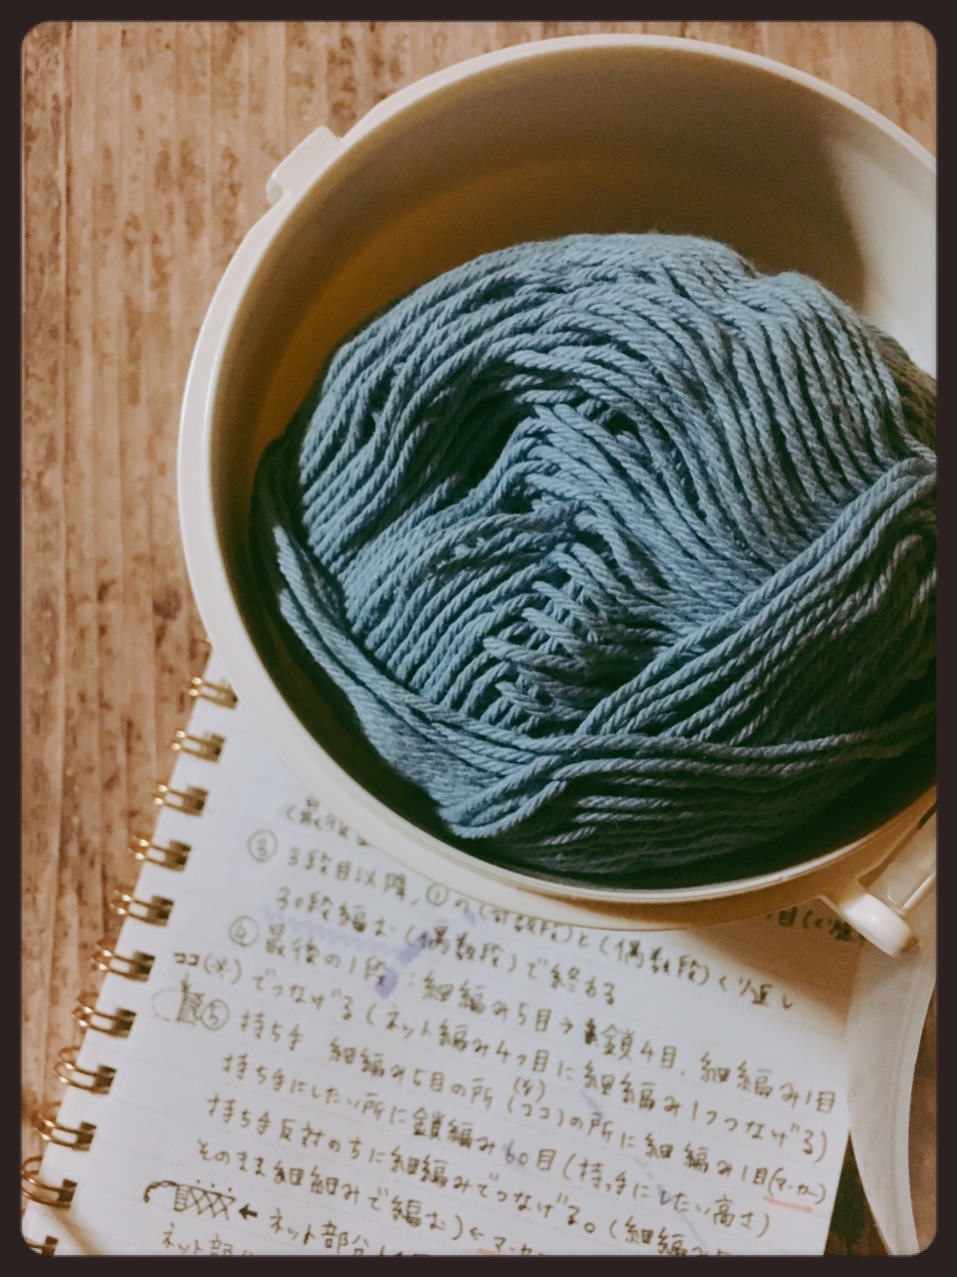 (最後
③ 3段目以降、①の(奇数段)と(偶数段)くり返し
30段編む(偶数段)で終わる
④ 最後の1段:細編み5目→鎖4目、細編み1目
ココ(※)でつなげる(ネット編み4つ目に細編み1つつなげる)
⑤ 持ち手 細編み5目の所(※)(ココ)の所に細編み1目(マーカー)
持ち手にしたい所に鎖編み60目(持ち手にしたい高さ)
持ち手反対のちに細編みでつなげる。(細編み5
そのまま細細みで編む)←マーカ
← ネット部分
ネット部分